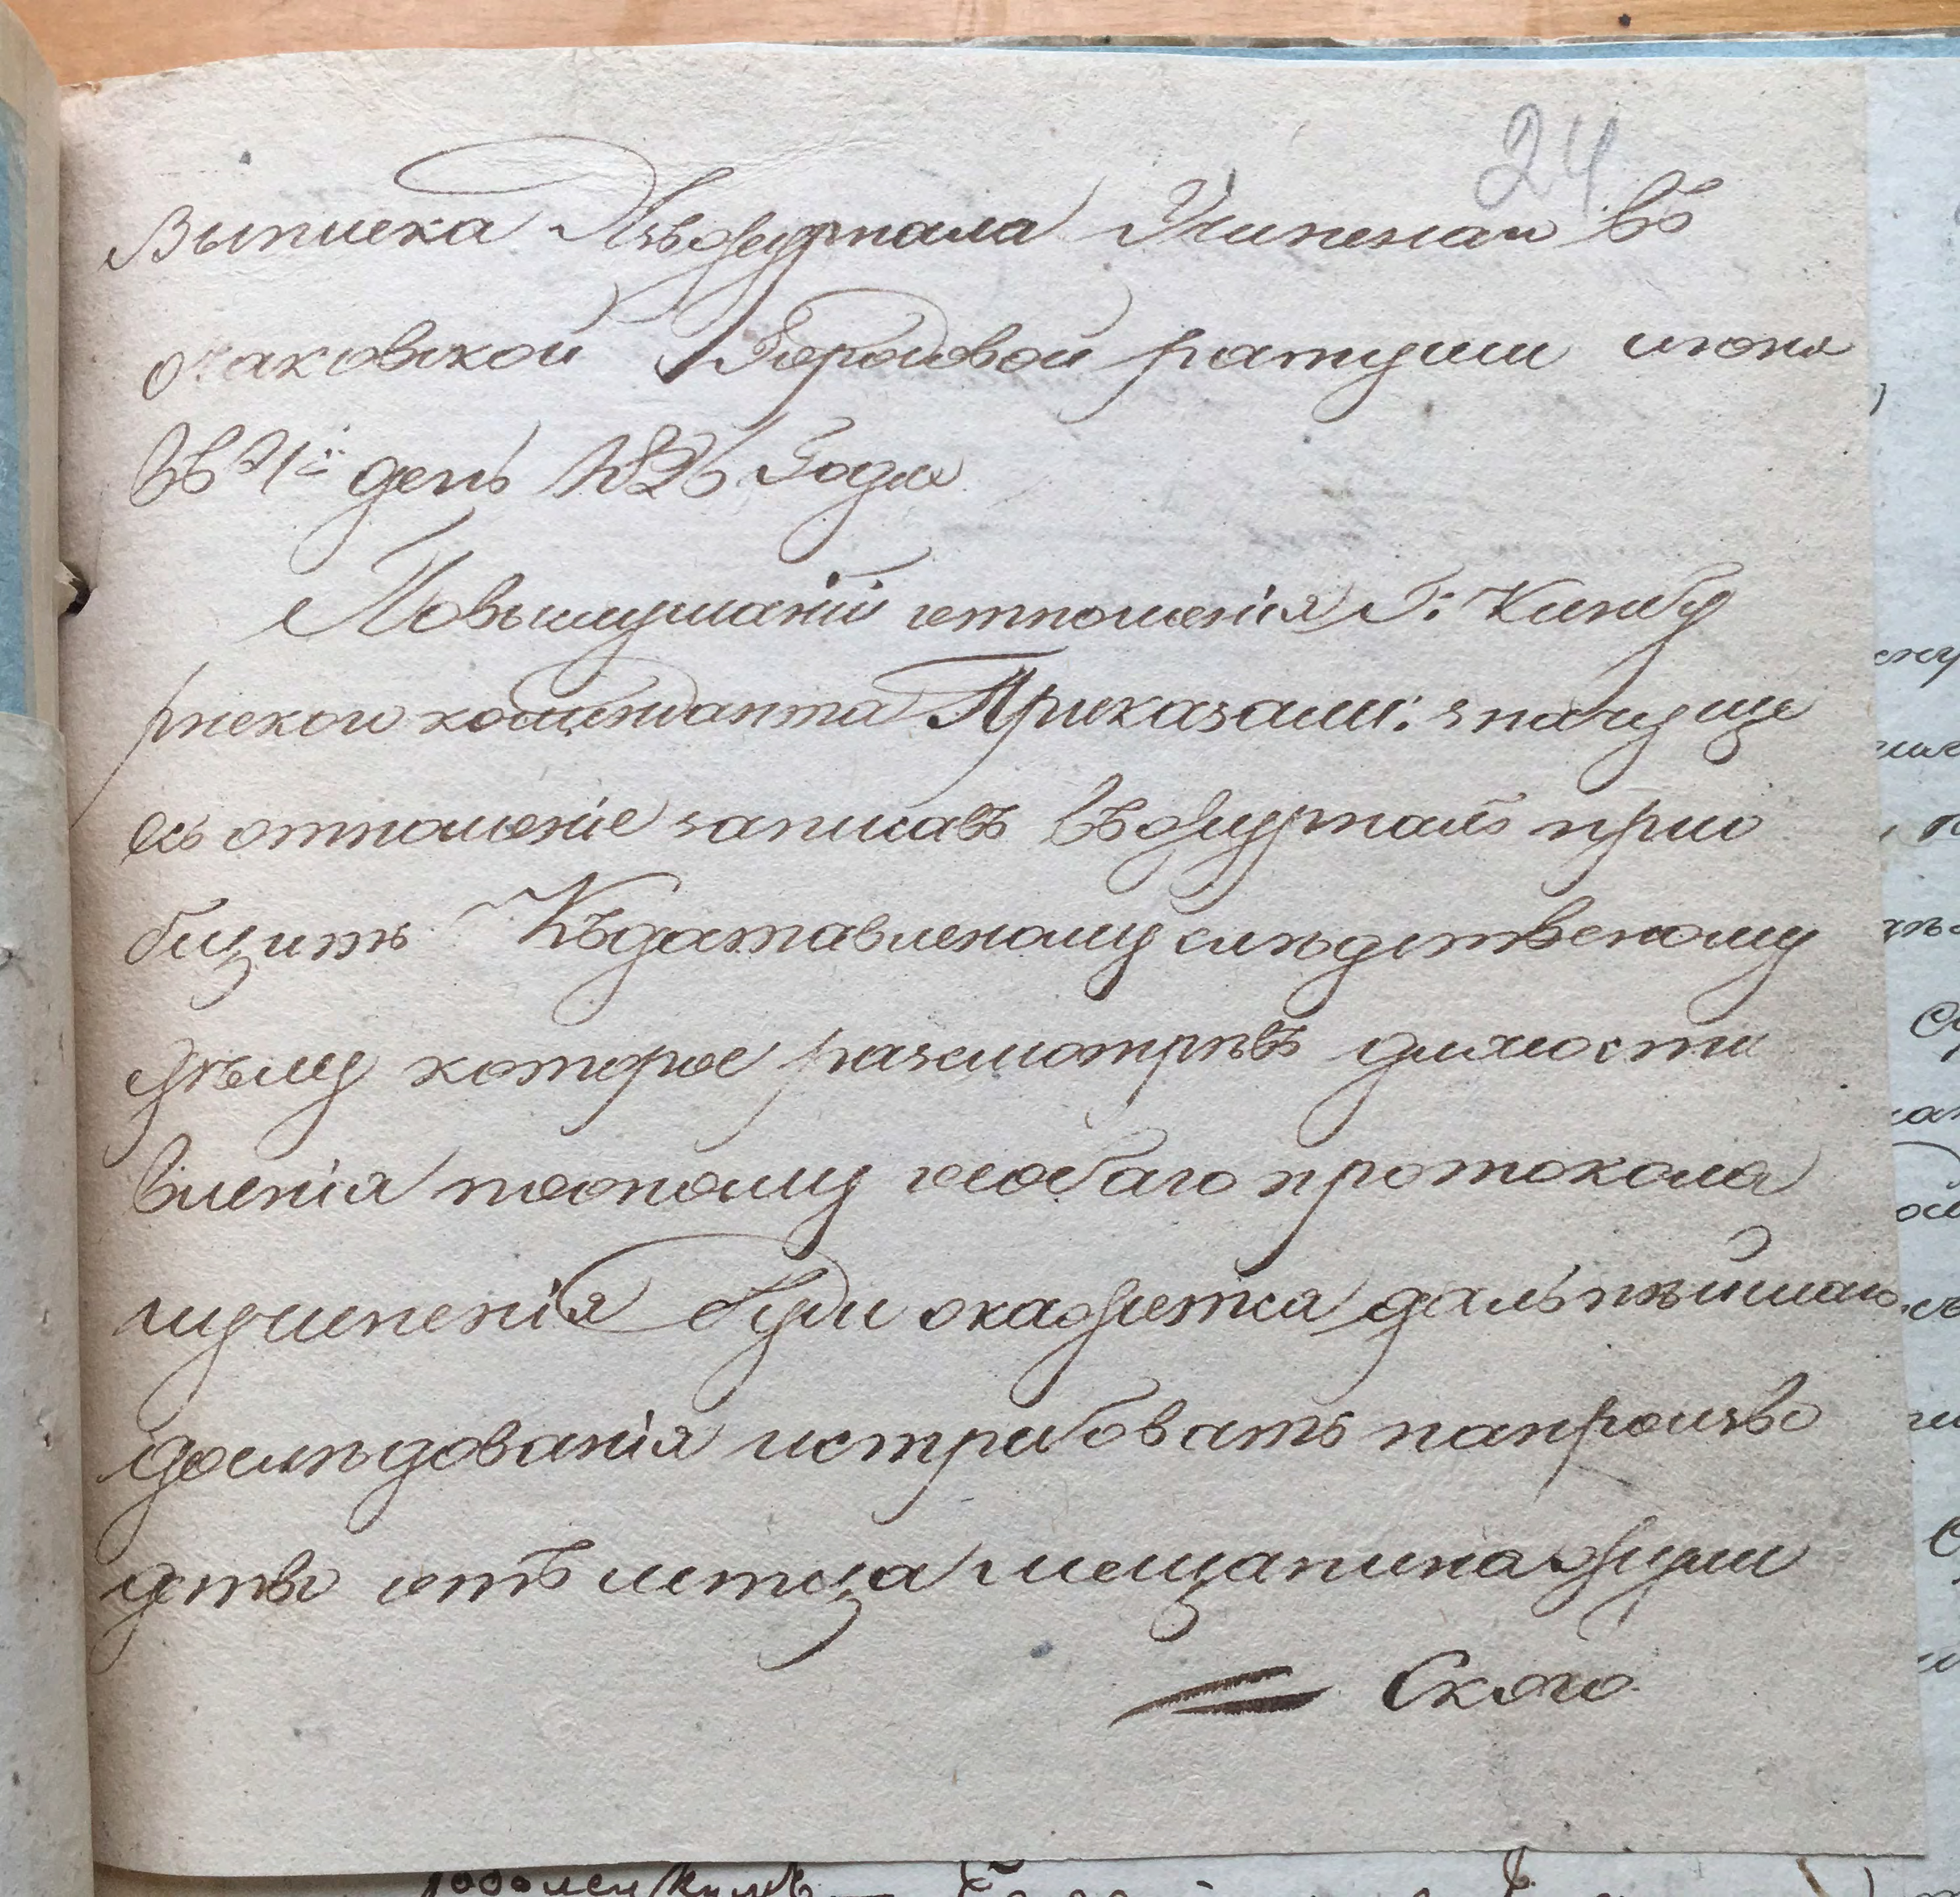 24
Выписка Изъ журнала Учиненая въ
очаковской Городовой ратуши июня
въ 21й день 1826 Года
Повыслушаніи отношенія Г: Кинбу
рнскои комменданта Приказали: значуще
есь отношеніе записавъ въ журналъ прио
бщить Къдоставленому следственому
делу которое разсмотревъ дляпоста
вленія поономu особаго протокола
иучиненія буди окажется дальнейшаго
доследованія истребовать напроизво
дство отъ истца мещанина жули
Ского